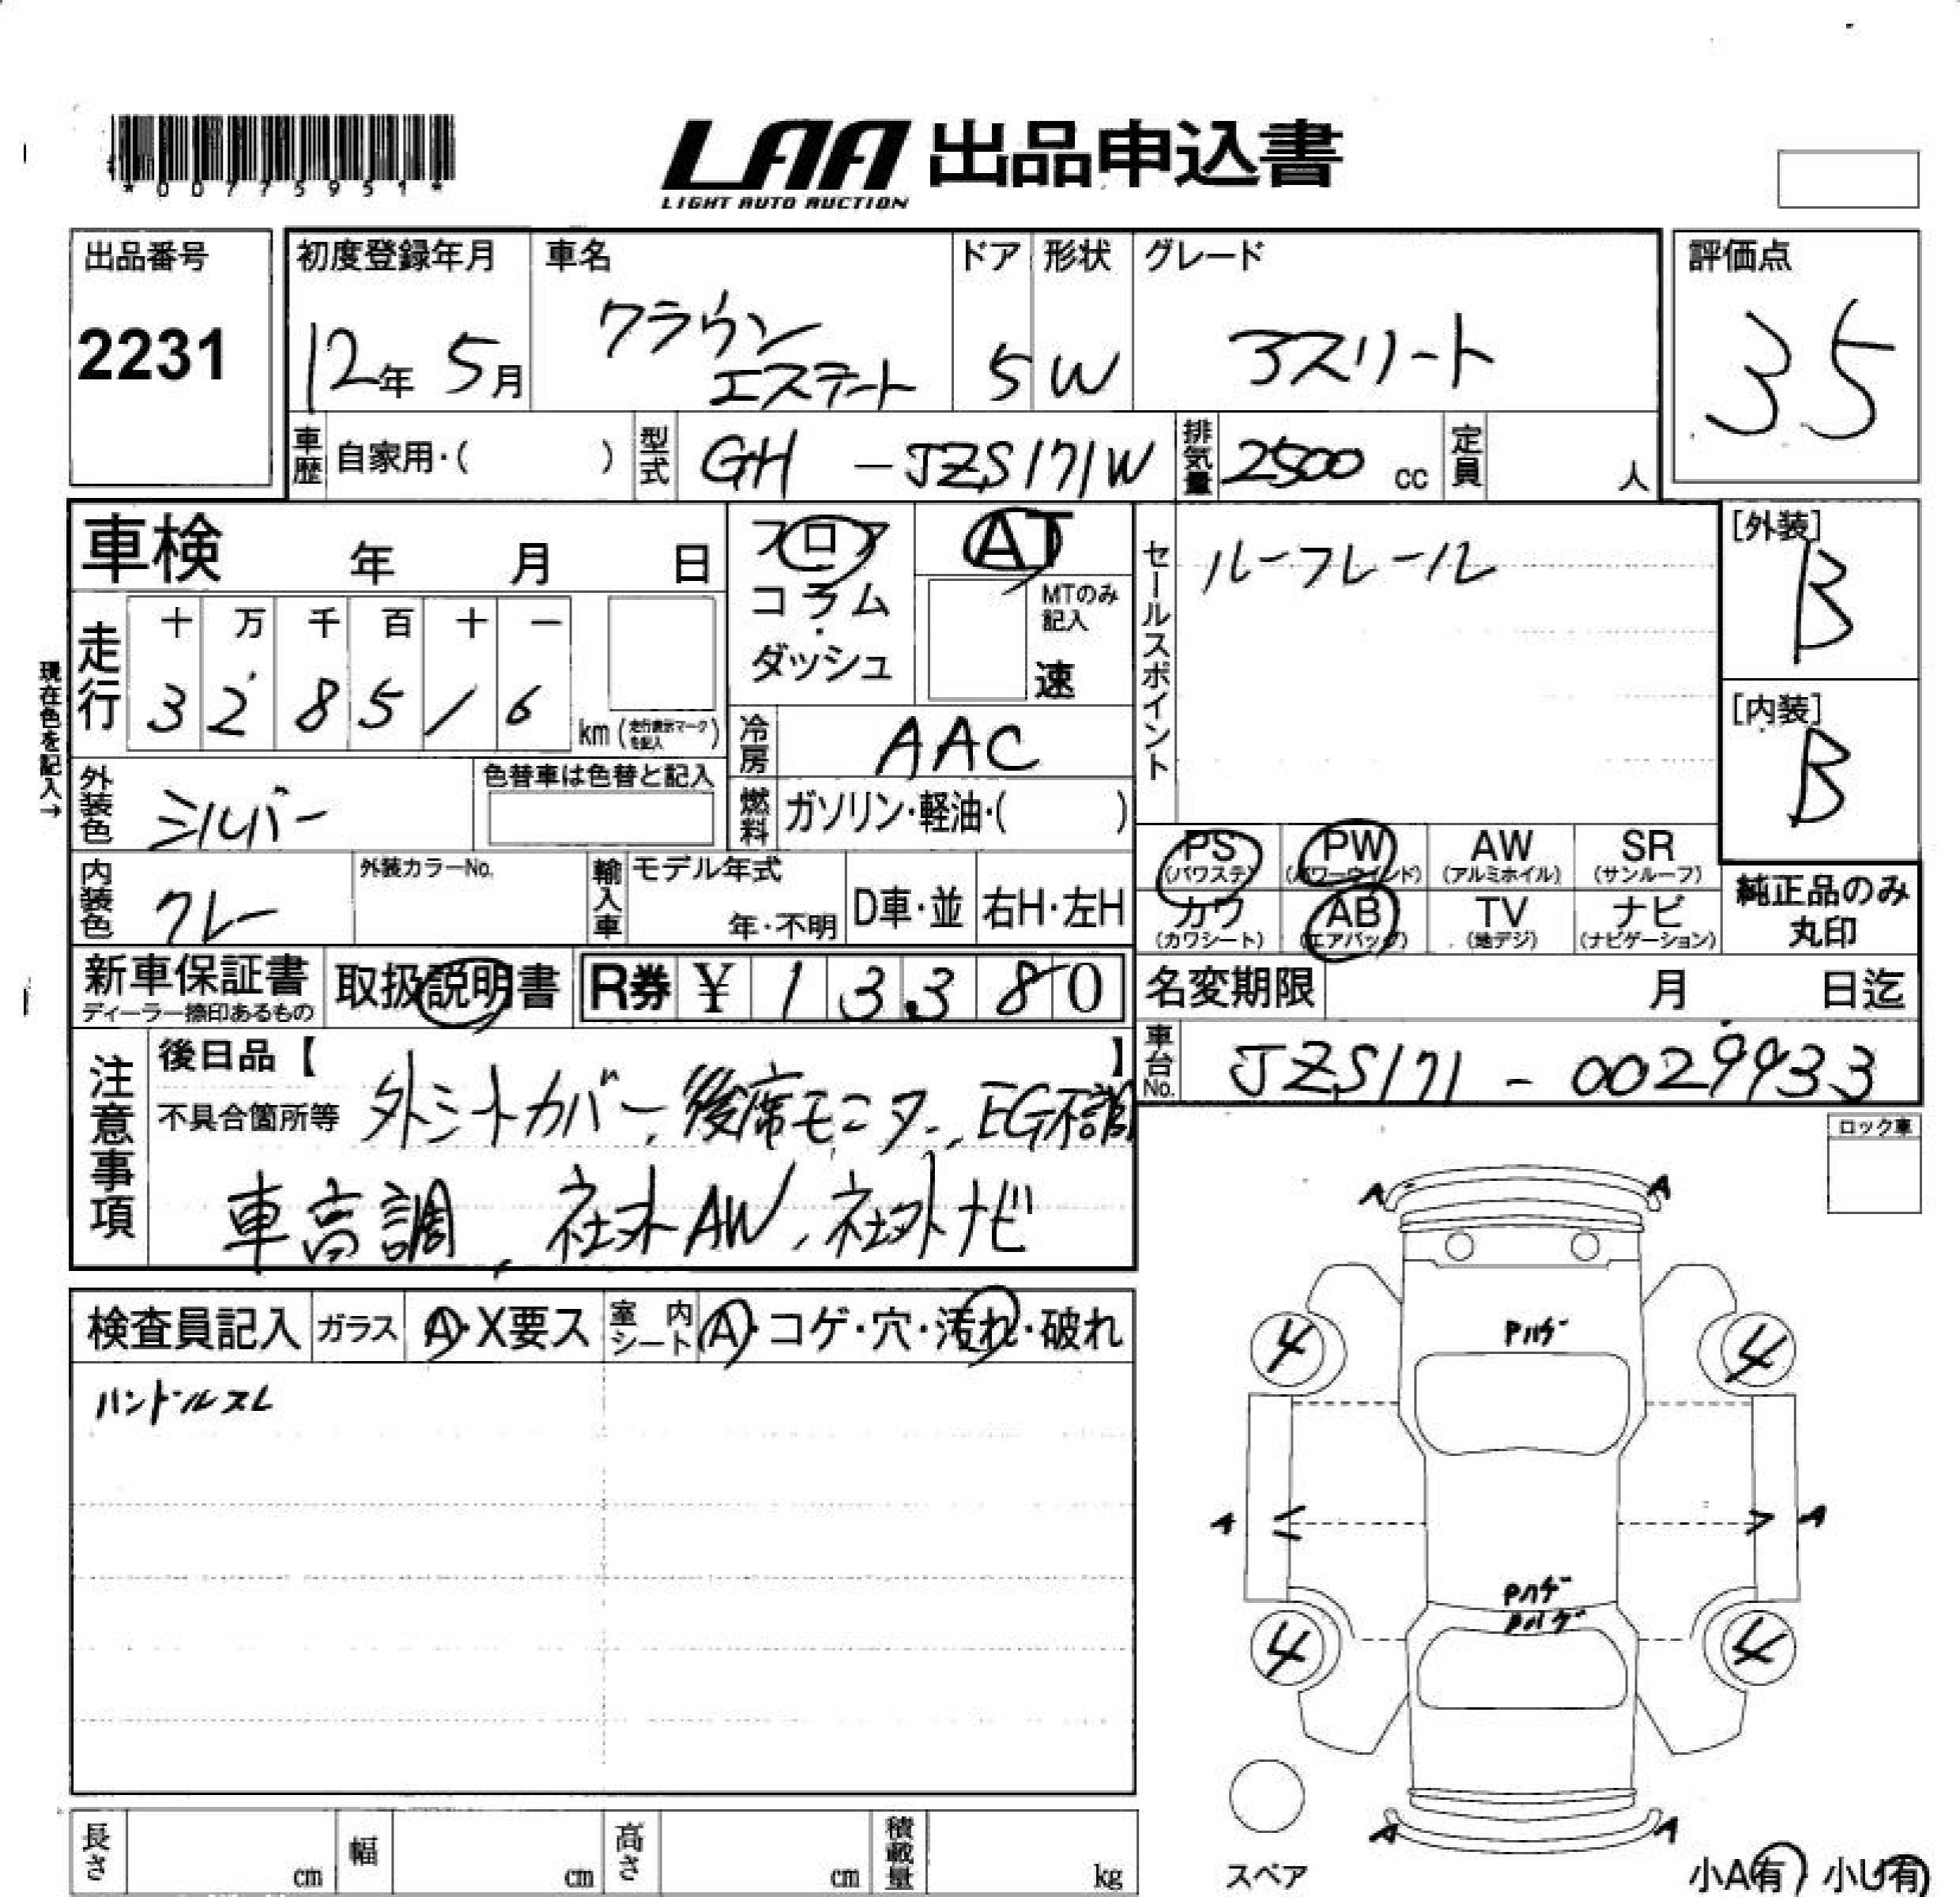 *00775951*
LAA 出品申込書
LIGHT AUTO AUCTION
出品番号
2231
初度登録年月
12年 5月
車名
クラウン
エステート
ドア
5
形状
W
グレード
アスリート
評価点
35
車歴 自家用・( )
型式 GH - JZS171W
排気量 2500 cc
定員 人
車検 年 月 日
フロア
コラム
・
ダッシュ
AT
MTのみ
記入
速
走行
十 万 千 百 十 一
3 2 8 5 1 6
km (走行表示マークを記入)
現在色を記入→
冷房 AAC
外装色 シルバー
色替車は色替と記入
燃料 ガソリン・軽油・( )
内装色 グレー
外装カラーNo.
輸入車
モデル年式
年・不明
D車・並
右H・左H
セールスポイント
ルーフレール
[外装]
B
[内装]
B
PS PW AW SR
(パワステ) (パワーウインド) (アルミホイル) (サンルーフ)
カワ AB TV ナビ
(カワシート) (エアバッグ) (地デジ) (ナビゲーション)
純正品のみ
丸印
新車保証書
ディーラー捺印あるもの
取扱説明書
R券 ¥ 13,380
名変期限 月 日迄
車台No. JZS171 - 0029933
注意事項
後日品【 】
不具合箇所等 外シートカバー、後席モニター、EG不調
車高調、社外AW、社外ナビ
ロック車
検査員記入
ガラス A・X要ス
室内シート A・コゲ・穴・汚れ・破れ
ハンドルスレ
A A
Pハゲ
4 4
A A
Pハゲ
Pハゲ
4 4
A A
スペア
小A有 小U有
長さ cm
幅 cm
高さ cm
積載量 kg